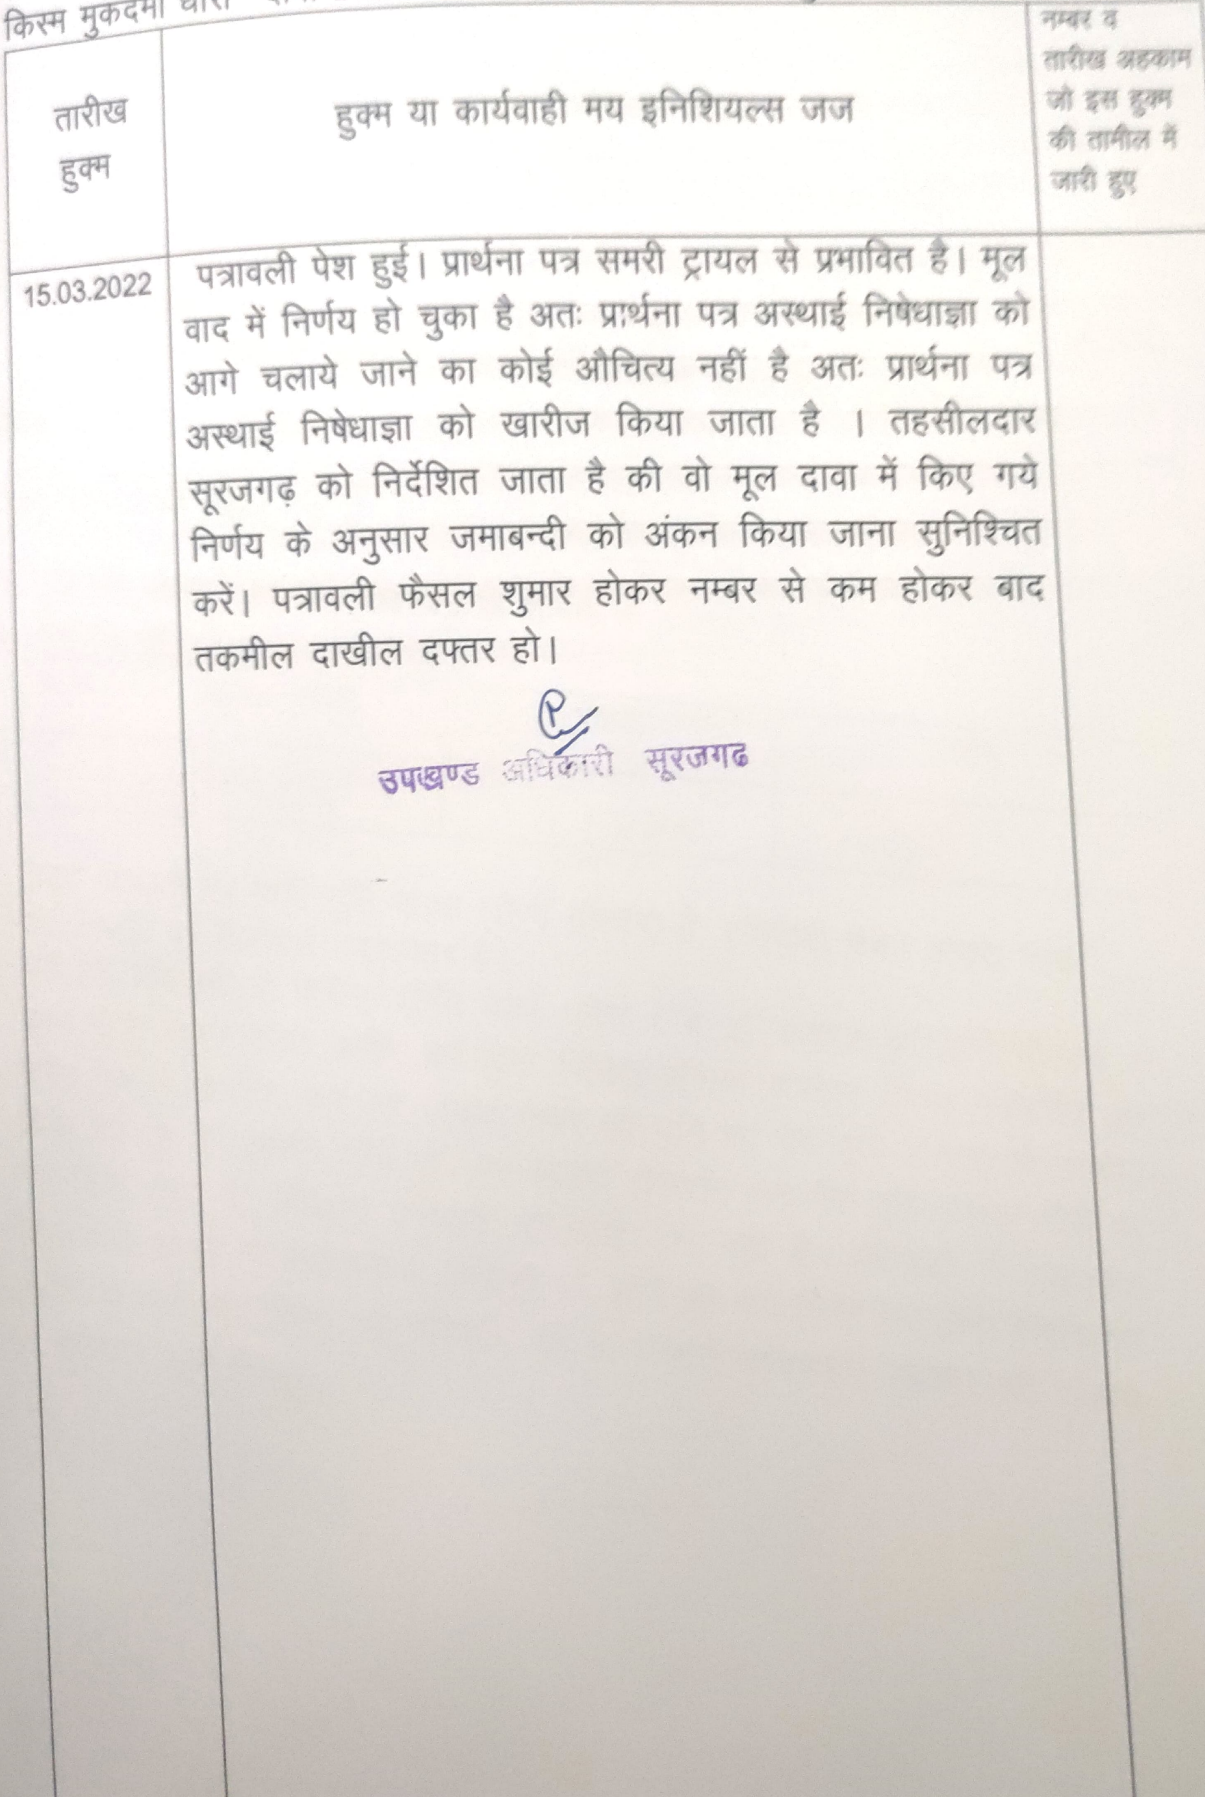 किस्म मुकदमा धारा
तारीख
हुक्म
हुक्म या कार्यवाही मय इनिशियल्स जज
नम्बर व
तारीख अहकाम
जो इस हुक्म
की तामील में
जारी हुए
15.03.2022
पत्रावली पेश हुई। प्रार्थना पत्र समरी ट्रायल से प्रभावित है। मूल
वाद में निर्णय हो चुका है अतः प्रार्थना पत्र अस्थाई निषेधाज्ञा को
आगे चलाये जाने का कोई औचित्य नहीं है अतः प्रार्थना पत्र
अस्थाई निषेधाज्ञा को खारीज किया जाता है । तहसीलदार
सूरजगढ़ को निर्देशित जाता है की वो मूल दावा में किए गये
निर्णय के अनुसार जमाबन्दी को अंकन किया जाना सुनिश्चित
करें। पत्रावली फैसल शुमार होकर नम्बर से कम होकर बाद
तकमील दाखील दफ्तर हो।
उपखण्ड अधिकारी सूरजगढ